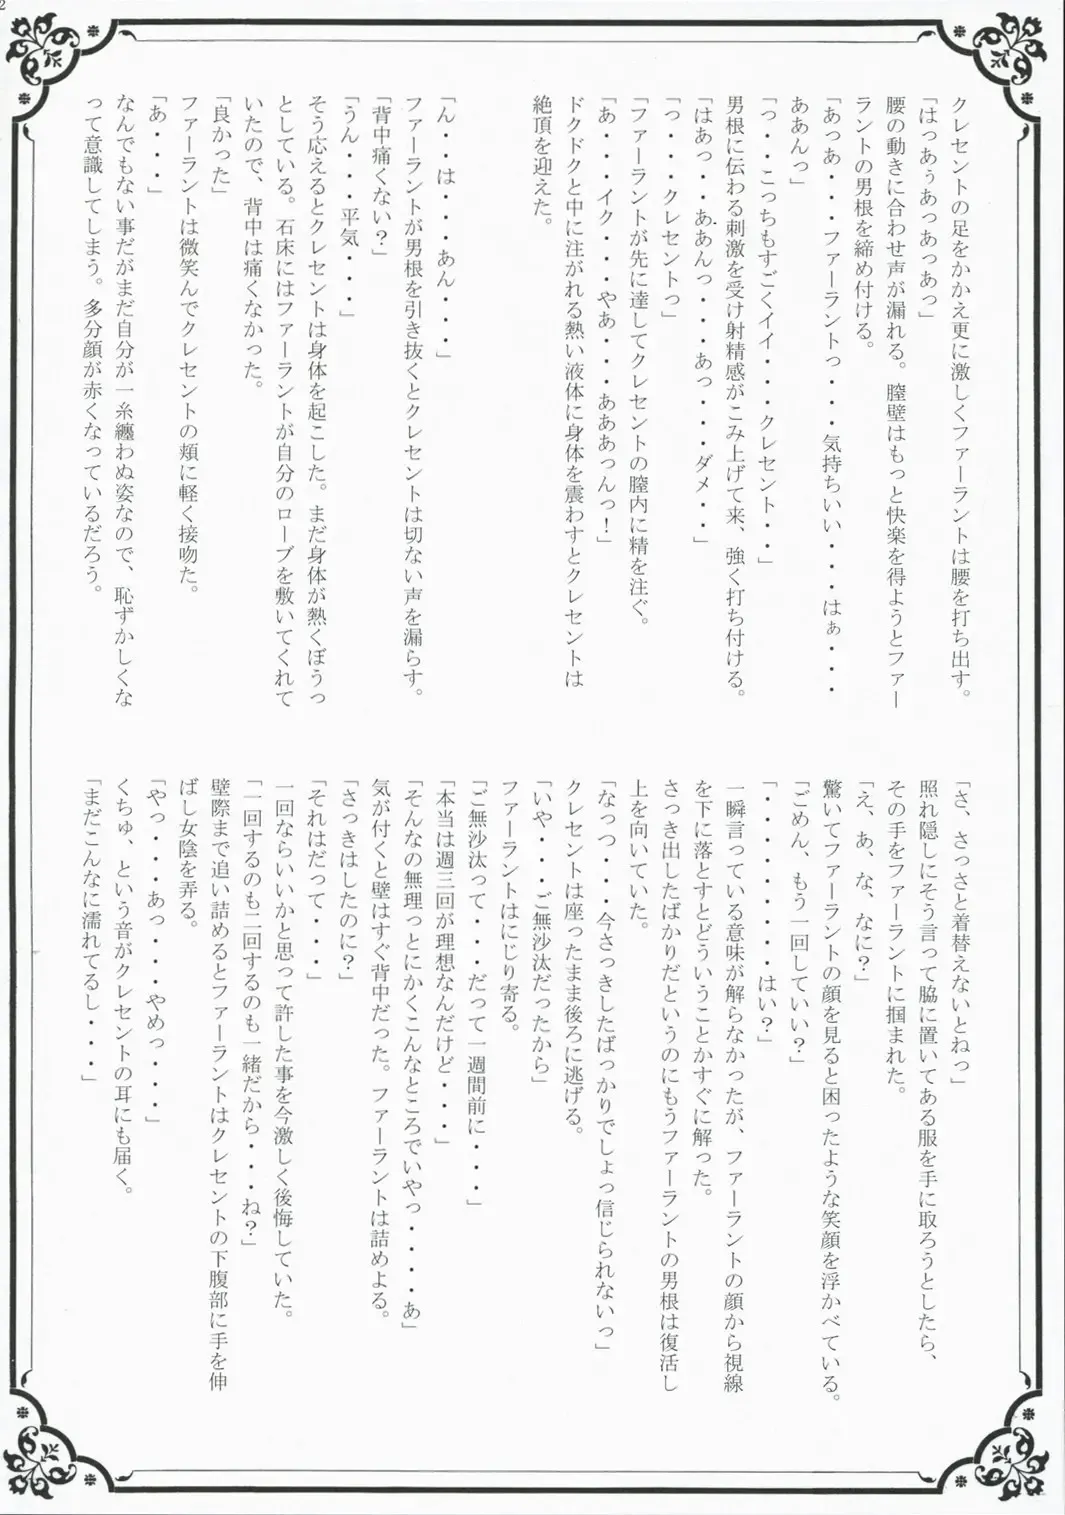 クレセントの足をかかえ更に激しくファーラントは腰を打ち出す。
「はっあぅあっあっあっ」
腰の動きに合わせ声が漏れる。膣壁はもっと快楽を得ようとファー
ラントの男根を締め付ける。
「あっあ・・・ファーラントっ・・・気持ちいい・・・はぁ・・・
ああんっ」
「っ・・こっちもすごくイイ・・・クレセント・・」
男根に伝わる刺激を受け射精感がこみ上げて来、強く打ち付ける。
「はあっ・・ああんっ・・・あっ・・・ダメ・・」
「っ・・・クレセントっ」
「ファーラントが先に達してクレセントの膣内に精を注ぐ。
「あ・・・イク・・・やあ・・・あああっんっ！」
ドクドクと中に注がれる熱い液体に身体を震わすとクレセントは
絶頂を迎えた。
「ん・・は・・・あん・・・」
ファーラントが男根を引き抜くとクレセントは切ない声を漏らす。
「背中痛くない？」
「うん・・・平気・・・」
そう応えるとクレセントは身体を起こした。まだ身体が熱くぼうっ
としている。石床にはファーラントが自分のローブを敷いてくれて
いたので、背中は痛くなかった。
「良かった」
ファーラントは微笑んでクレセントの頬に軽く接吻た。
「あ・・・」
なんでもない事だがまだ自分が一糸纏わぬ姿なので、恥ずかしくな
って意識してしまう。多分顔が赤くなっているだろう。
「さ、さっさと着替えないとねっ」
照れ隠しにそう言って脇に置いてある服を手に取ろうとしたら、
その手をファーラントに掴まれた。
「え、あ、な、なに？」
驚いてファーラントの顔を見ると困ったような笑顔を浮かべている。
「ごめん、もう一回していい？」
「・・・・・・・はい？」
一瞬言っている意味が解らなかったが、ファーラントの顔から視線
を下に落とすとどういうことかすぐに解った。
さっき出したばかりだというのにもうファーラントの男根は復活し
上を向いていた。
「なっっ・・・今さっきしたばっかりでしょっ信じられないっ」
クレセントは座ったまま後ろに逃げる。
「いや・・・ご無沙汰だったから」
ファーラントはにじり寄る。
「ご無沙汰って・・・だって一週間前に・・・」
「本当は週三回が理想なんだけど・・・」
「そんなの無理っとにかくこんなところでいやっ・・・・あ」
気が付くと壁はすぐ背中だった。ファーラントは詰めよる。
「さっきはしたのに？」
「それはだって・・・」
一回ならいいかと思って許した事を今激しく後悔していた。
「一回するのも二回するのも一緒だから・・・ね？」
壁際まで追い詰めるとファーラントはクレセントの下腹部に手を伸
ばし女陰を弄る。
「やっ・・・あっ・・・やめっ・・・」
くちゅ、という音がクレセントの耳にも届く。
「まだこんなに濡れてるし・・・」